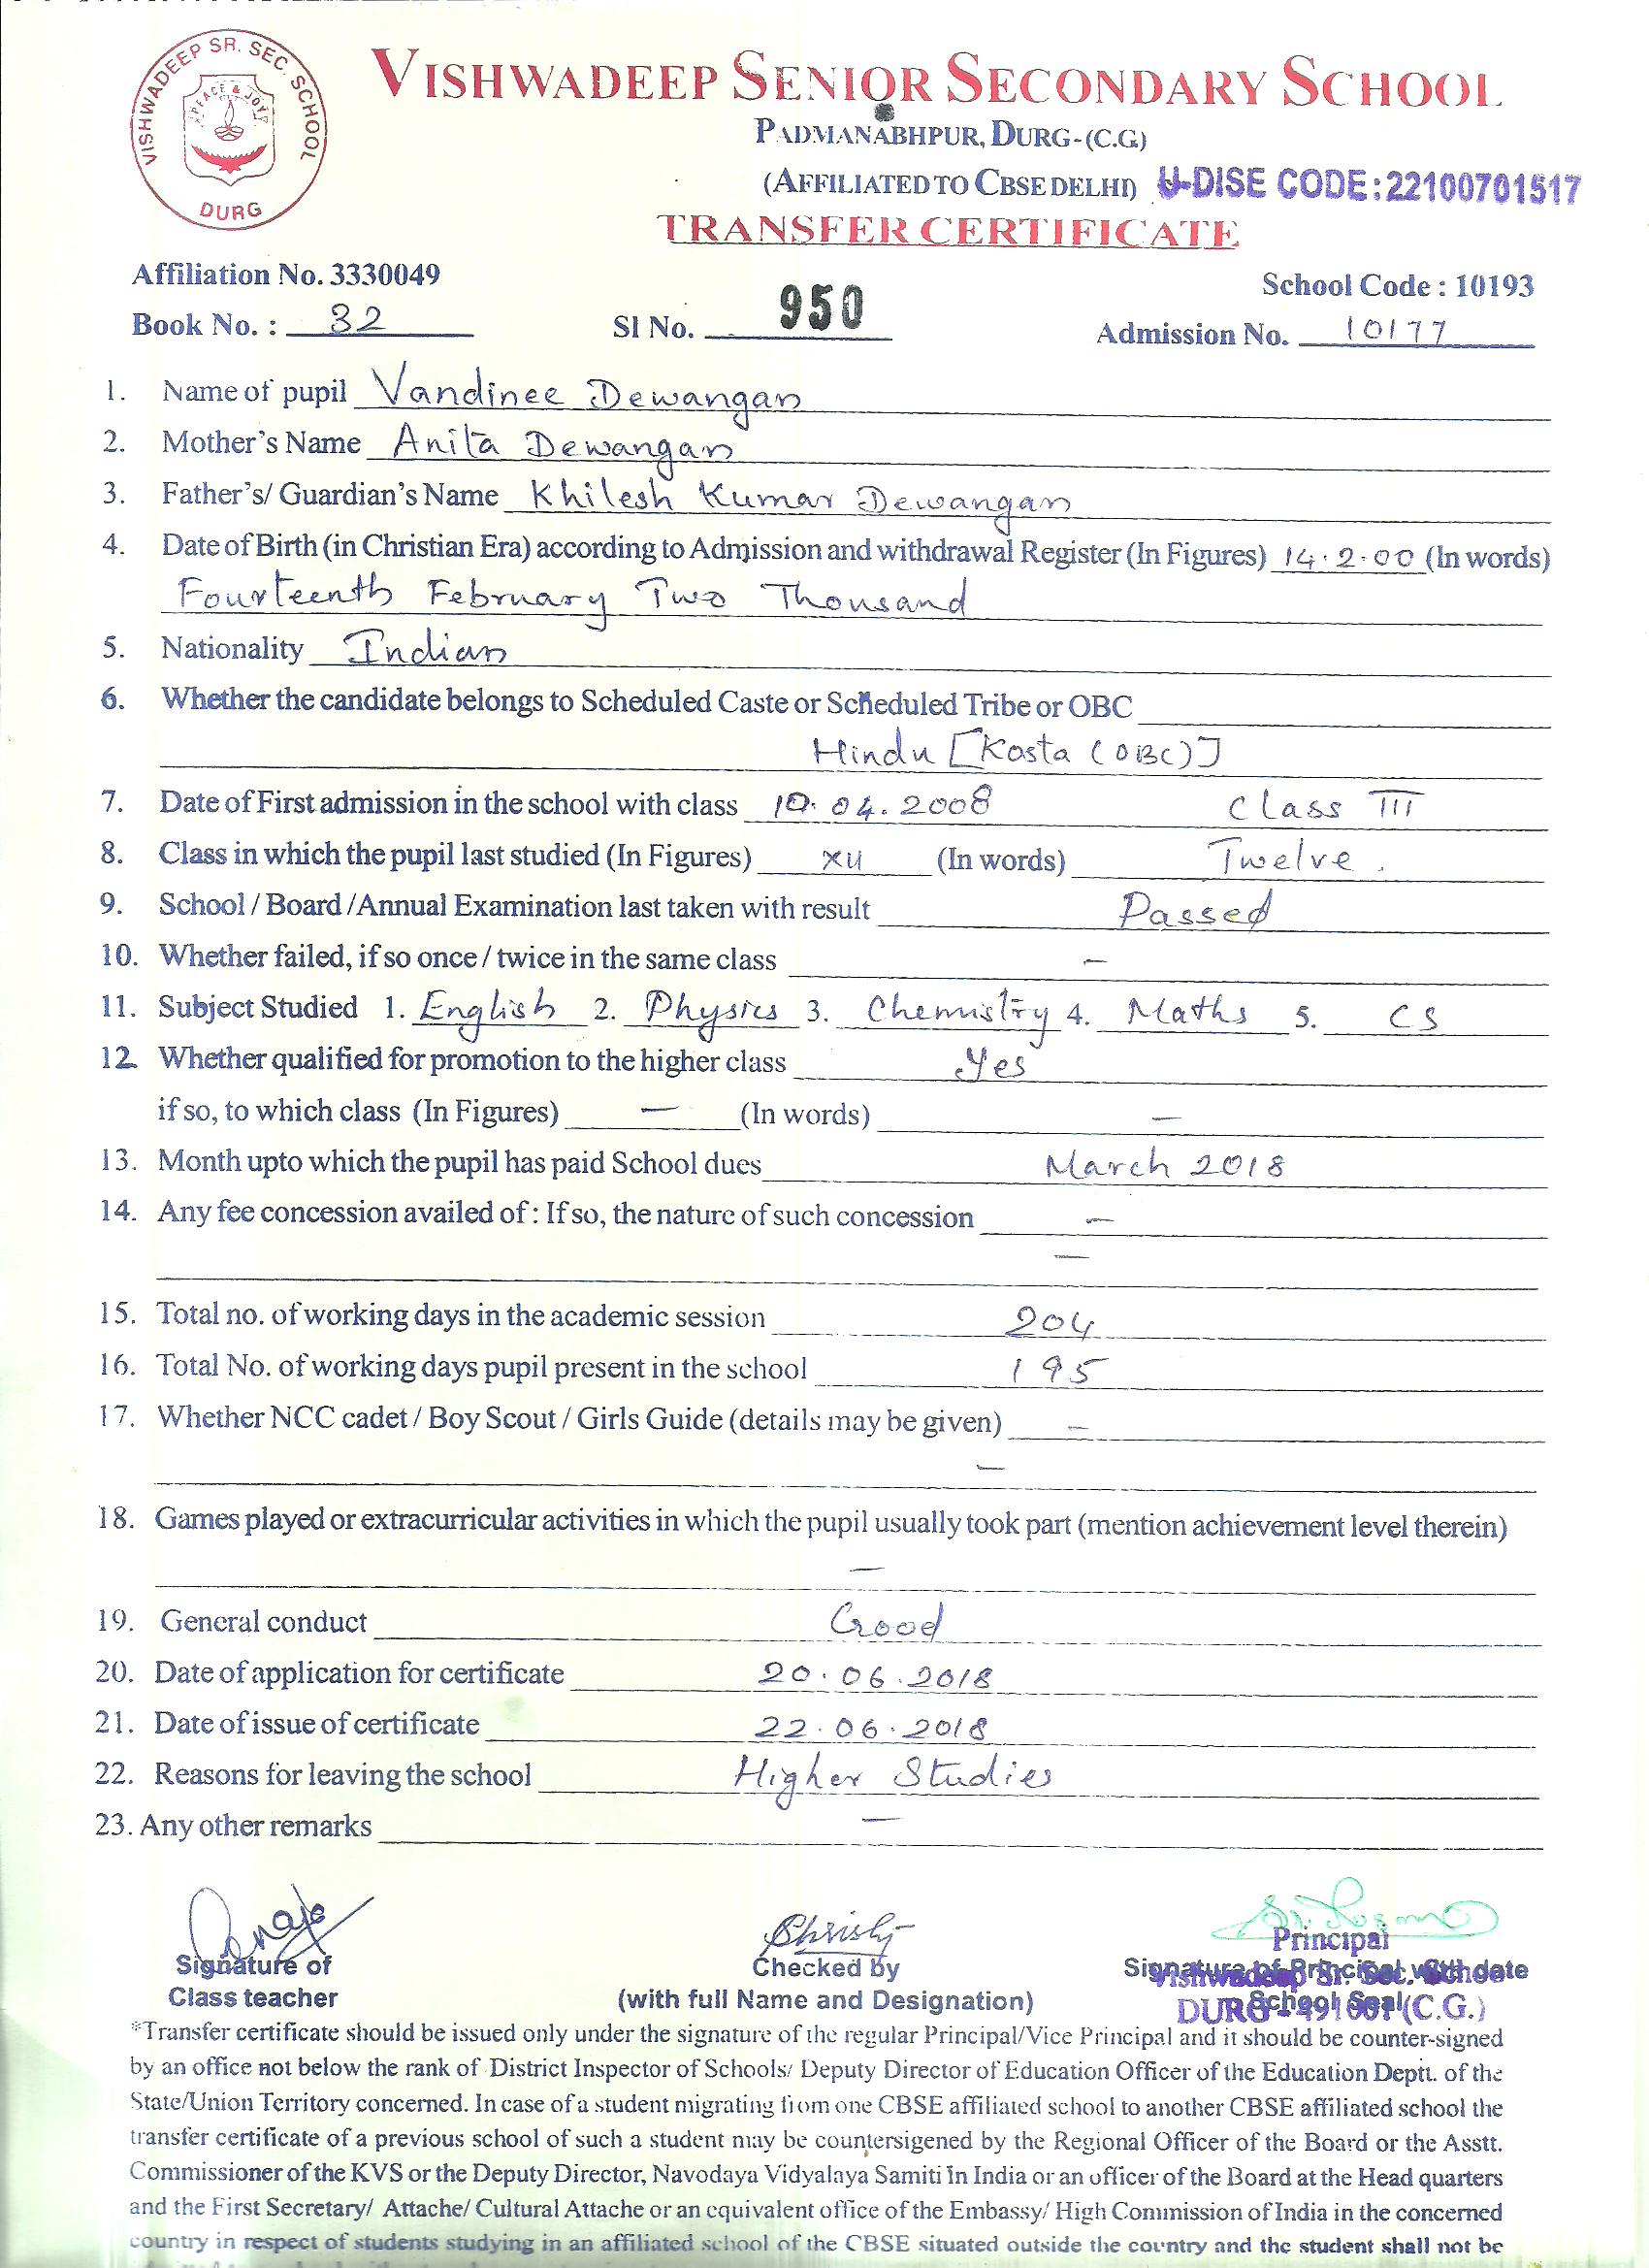 VISHWADEEP SR. SEC. SCHOOL
PEACE & JOY
DURG
VISHWADEEP SENIOR SECONDARY SCHOOL
PADMANABHPUR, DURG-(C.G)
(AFFILIATED TO CBSE DELHI) U-DISE CODE:22100701517
TRANSFER CERTIFICATE
Affiliation No. 3330049 School Code : 10193
Book No. : 32 Sl No. 950 Admission No. 10177
1. Name of pupil Vandinee Dewangan
2. Mother's Name Anita Dewangan
3. Father's/ Guardian's Name Khilesh Kumar Dewangan
4. Date of Birth (in Christian Era) according to Admission and withdrawal Register (In Figures) 14.2.00 (In words)
Fourteenth February Two Thousand
5. Nationality Indian
6. Whether the candidate belongs to Scheduled Caste or Scheduled Tribe or OBC
Hindu [Kosta (OBC)]
7. Date of First admission in the school with class 10.04.2008 Class III
8. Class in which the pupil last studied (In Figures) XII (In words) Twelve.
9. School / Board /Annual Examination last taken with result Passed
10. Whether failed, if so once / twice in the same class –
11. Subject Studied 1. English 2. Physics 3. Chemistry 4. Maths 5. CS
12. Whether qualified for promotion to the higher class Yes
if so, to which class (In Figures) – (In words) –
13. Month upto which the pupil has paid School dues March 2018
14. Any fee concession availed of : If so, the nature of such concession –
–
15. Total no. of working days in the academic session 204
16. Total No. of working days pupil present in the school 195
17. Whether NCC cadet / Boy Scout / Girls Guide (details may be given) –
–
18. Games played or extracurricular activities in which the pupil usually took part (mention achievement level therein)
–
19. General conduct Good
20. Date of application for certificate 20.06.2018
21. Date of issue of certificate 22.06.2018
22. Reasons for leaving the school Higher Studies
23. Any other remarks –
Principal
Signature of Checked by Signature of Principal with date
Vishwadeep Sr. Sec. School
Class teacher (with full Name and Designation) School Seal
DURG - 491001 (C.G.)
*Transfer certificate should be issued only under the signature of the regular Principal/Vice Principal and it should be counter-signed
by an office not below the rank of District Inspector of Schools/ Deputy Director of Education Officer of the Education Deptt. of the
State/Union Territory concerned. In case of a student migrating from one CBSE affiliated school to another CBSE affiliated school the
transfer certificate of a previous school of such a student may be countersigened by the Regional Officer of the Board or the Asstt.
Commissioner of the KVS or the Deputy Director, Navodaya Vidyalaya Samiti in India or an officer of the Board at the Head quarters
and the First Secretary/ Attache/ Cultural Attache or an equivalent office of the Embassy/ High Commission of India in the concerned
country in respect of students studying in an affiliated school of the CBSE situated outside the country and the student shall not be